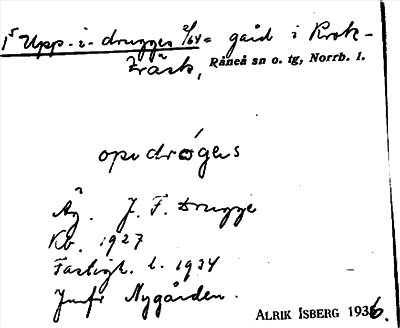 Upp-i-drugges 2/64 = gård i Krok-
träsk, Råneå sn o. tg, Norrb. l.
opidrøgens
Äg. J. F. Drugge
Kb. 1927
Fastigh. l. 1934
Jmfr Nygården.
ALRIK ISBERG 1936.